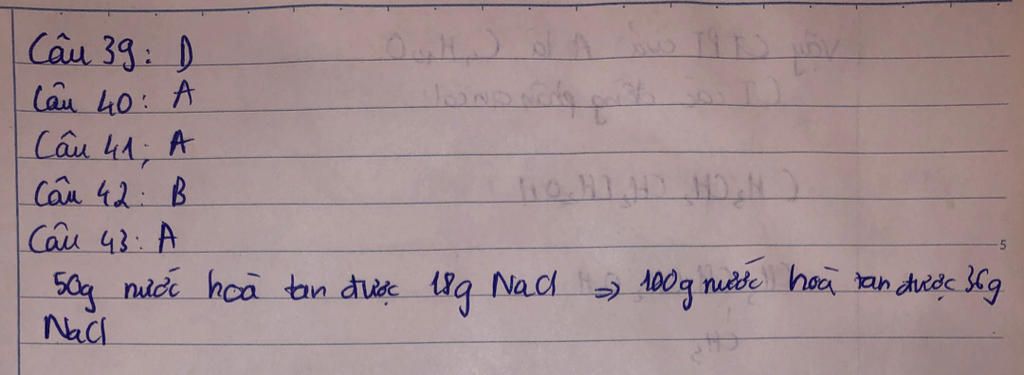 Câu 39: D
Câu 40: A
Câu 41: A
Câu 42: B
Câu 43: A
5
50g nước hoà tan được 18g NaCl => 100g nước hoà tan được 36g
NaCl